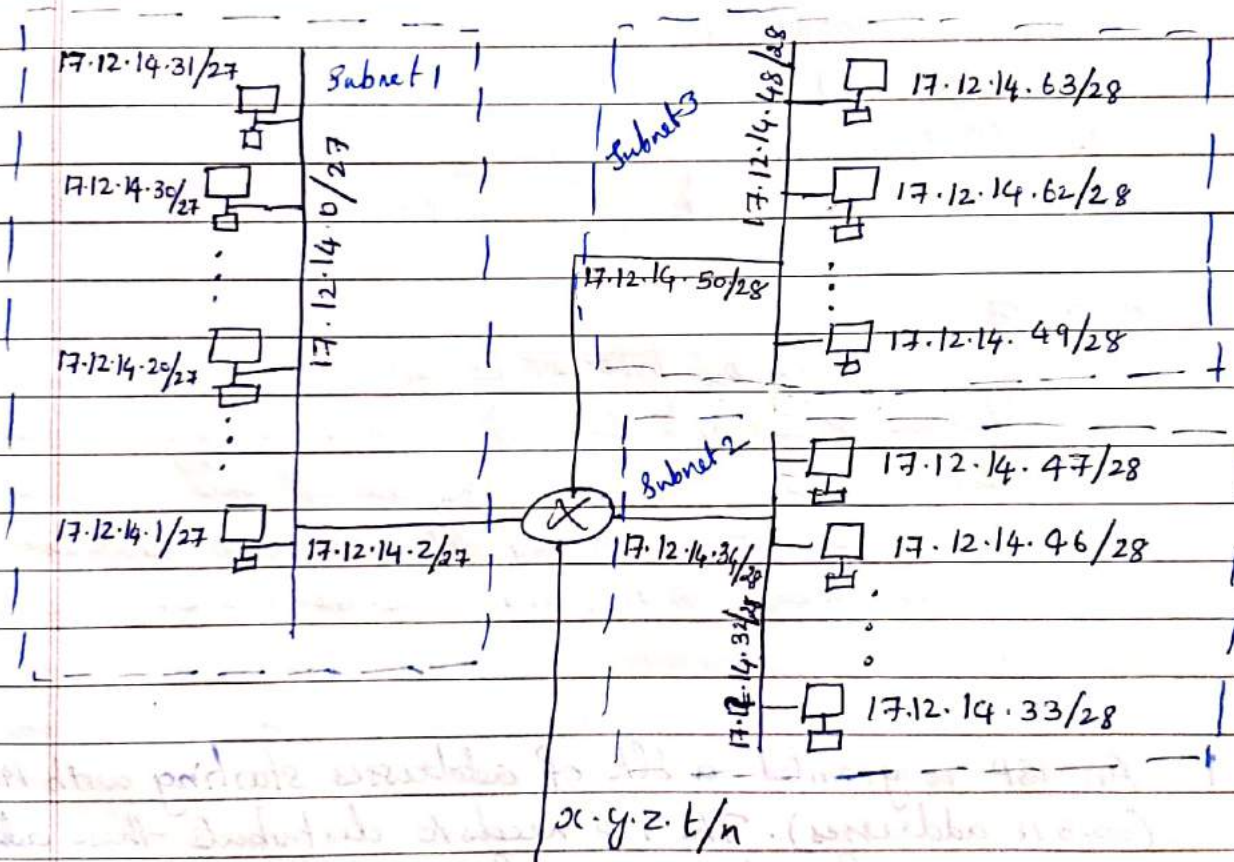 17.12.14.31/27
Subnet 1
17.12.14.30/27
17.12.14.0/27
17.12.14.20/27
17.12.14.1/27
17.12.14.2/27
Subnet 3
17.12.14.48/28
17.12.14.63/28
17.12.14.62/28
17.12.14.50/28
17.12.14.49/28
Subnet 2
17.12.14.47/28
17.12.14.34/28
17.12.14.46/28
17.12.14.32/28
17.12.14.33/28
x.y.z.t/n